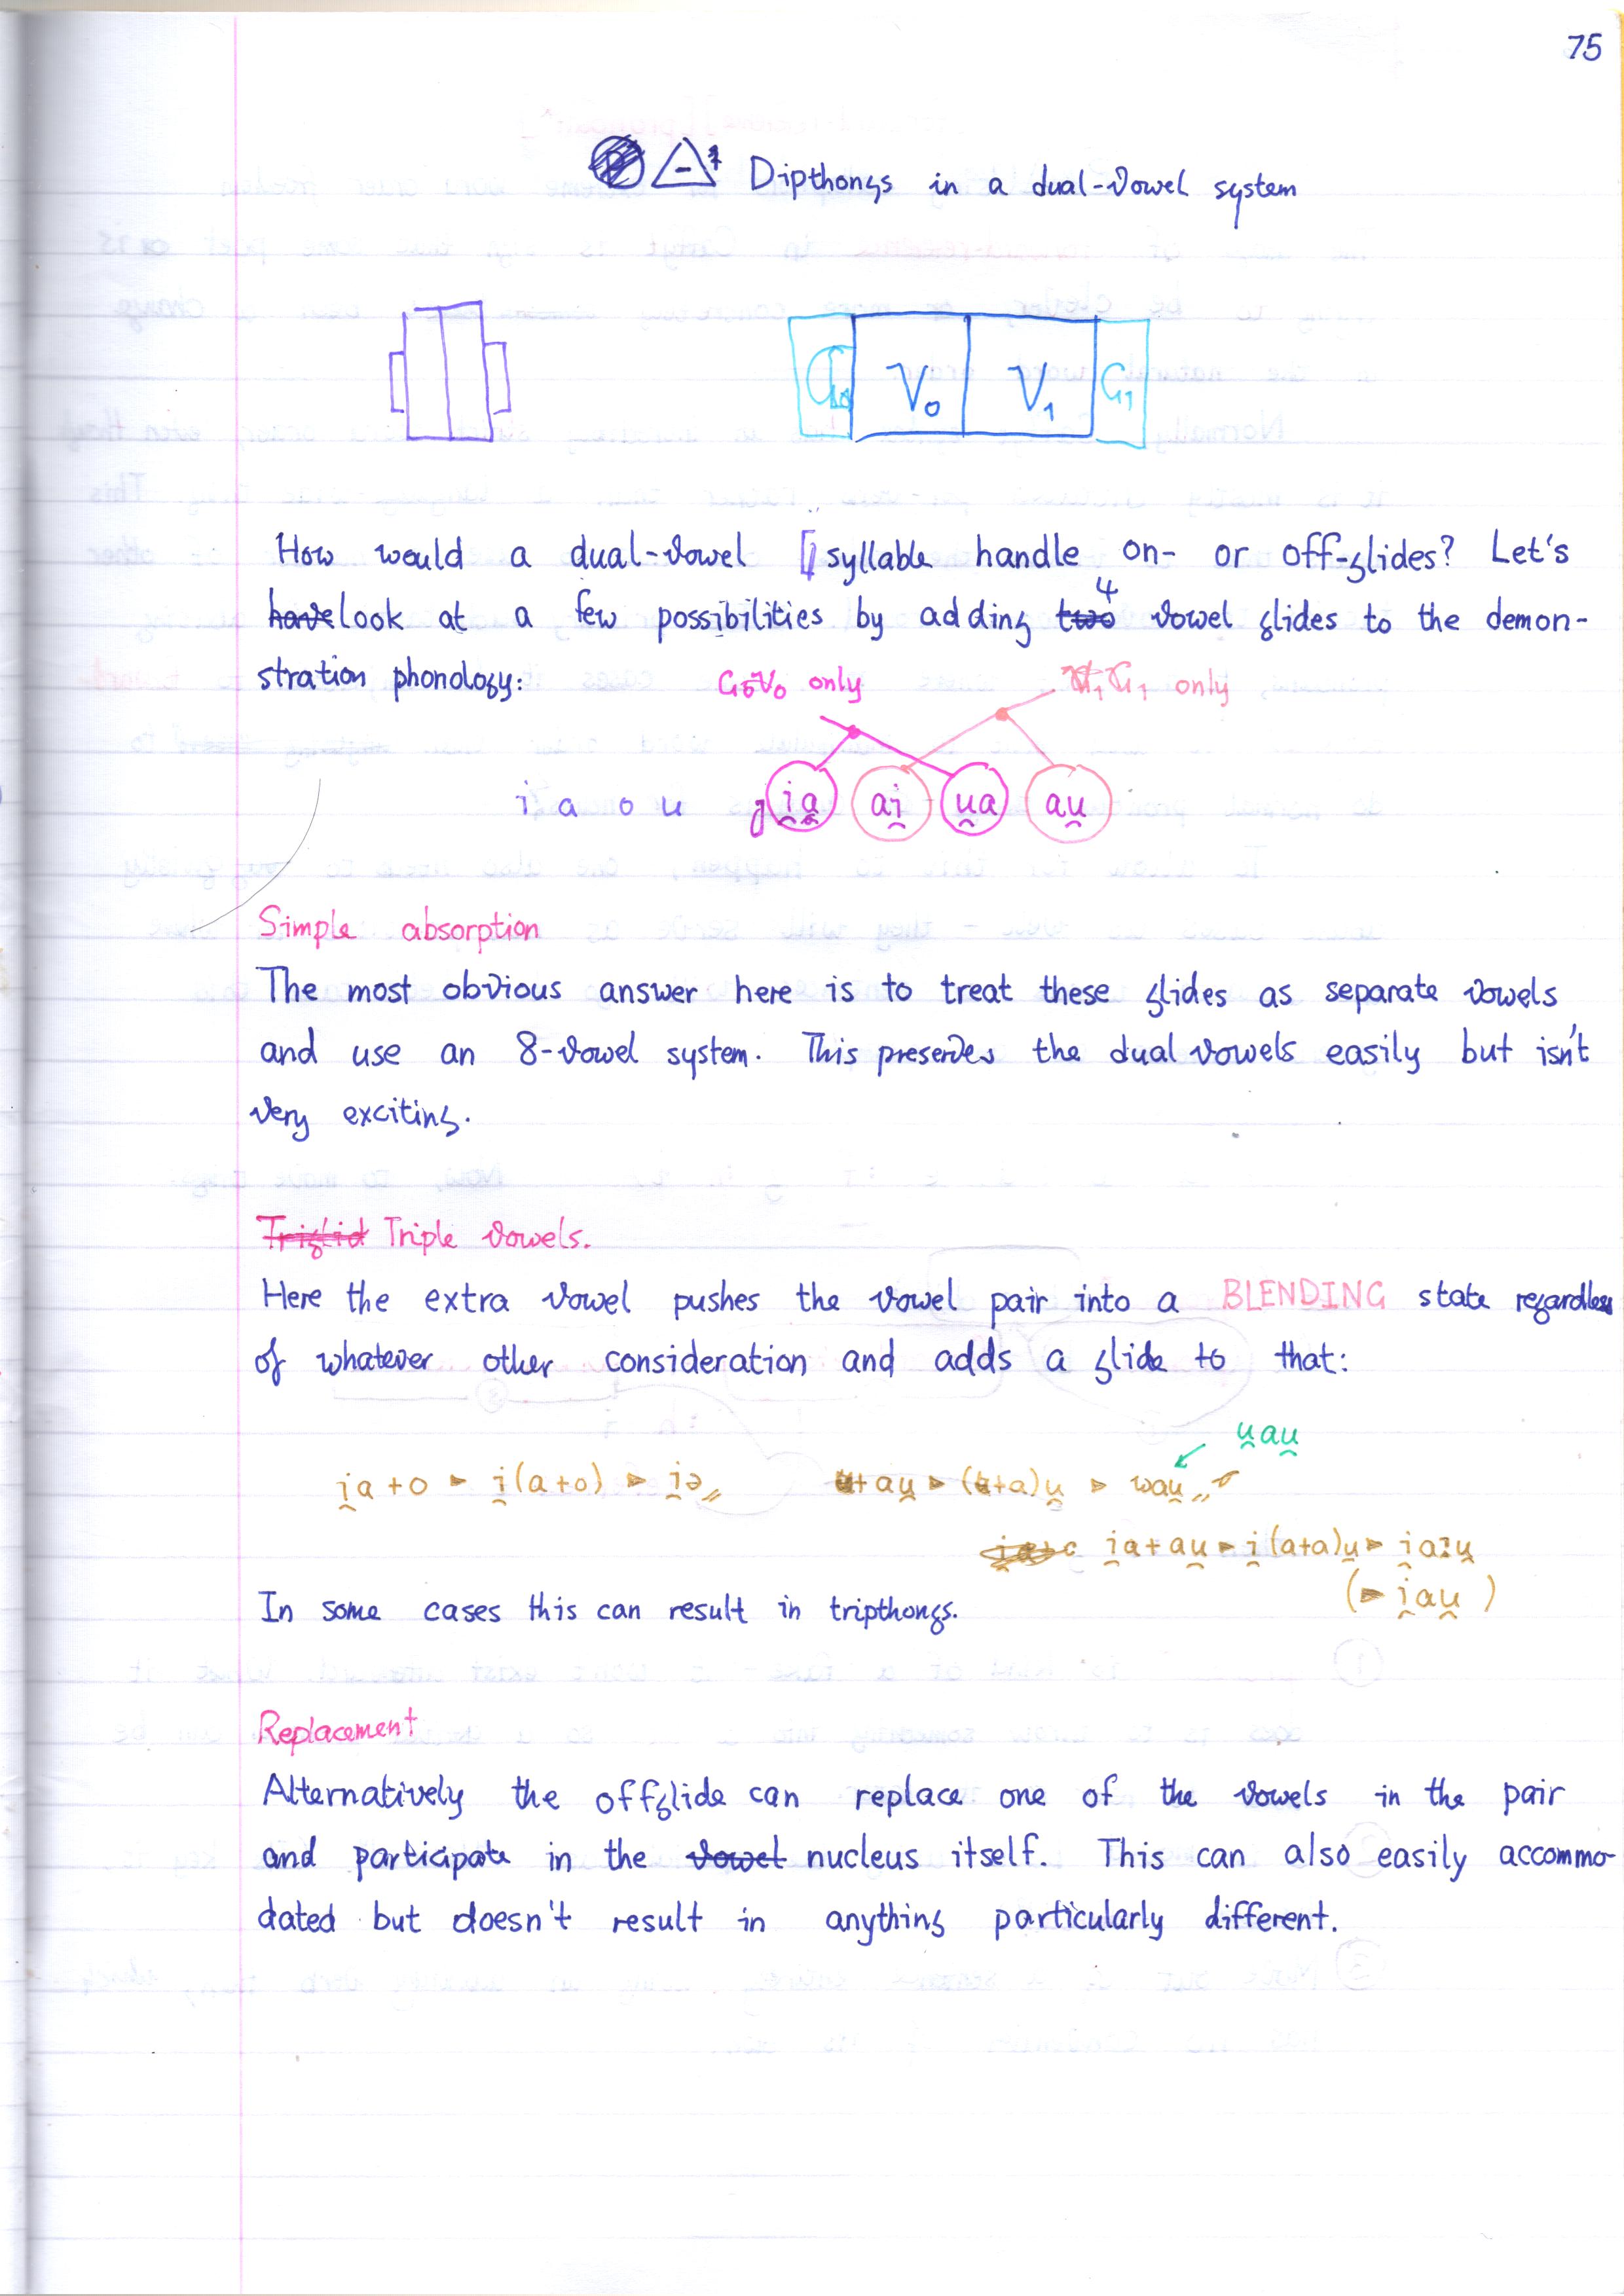 75
Dipthongs in a dual-vowel system
G₀ V₀ V₁ G₁
How would a dual-vowel syllable handle on- or off-glides? Let's
have look at a few possibilities by adding two 4 vowel glides to the demon-
stration phonology:
G₀V₀ only
V₁G₁ only
i a o u i̯a ai̯ u̯a au̯
Simple absorption
The most obvious answer here is to treat these glides as separate vowels
and use an 8-vowel system. This preserves the dual vowels easily but isn't
very exciting.
Triglid Triple vowels.
Here the extra vowel pushes the vowel pair into a BLENDING state regardless
of whatever other consideration and adds a glide to that:
u̯au̯
i̯a+o ► i̯(a+o) ► i̯ɔ
u+au̯ ► (u+a)u̯ ► wau̯
i̯a+au̯ ► i̯(a+a)u̯ ► i̯aːu̯
(► i̯au̯)
In some cases this can result in tripthongs.
Replacement
Alternatively the offglide can replace one of the vowels in the pair
and participate in the vowel nucleus itself. This can also easily accommo-
dated but doesn't result in anything particularly different.